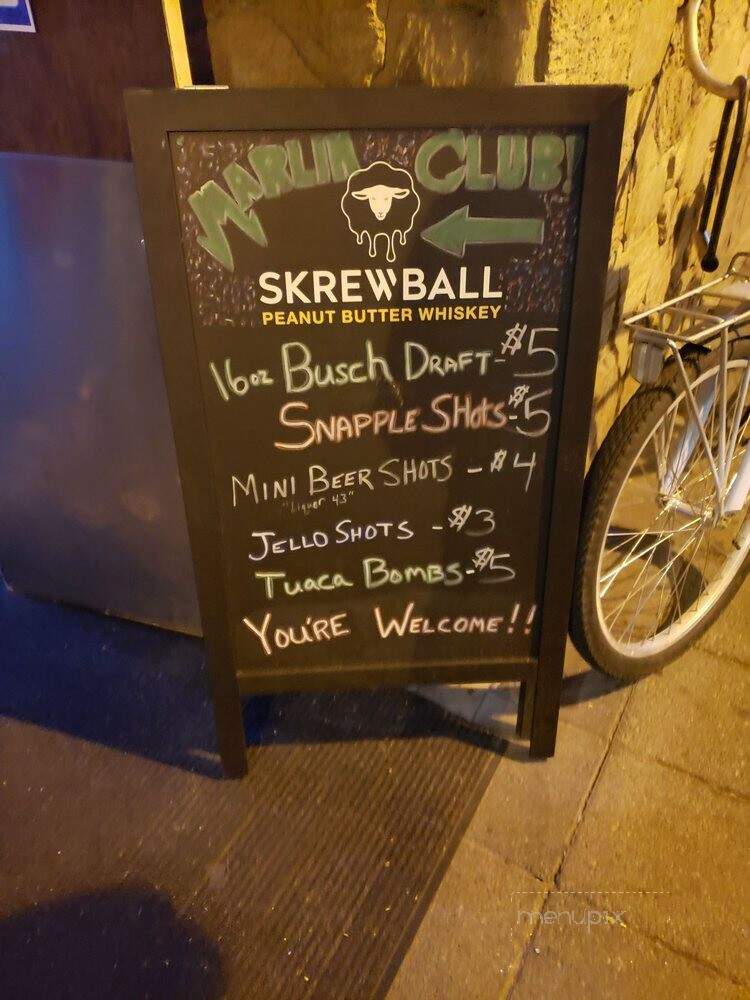 MARLIN CLUB!
SKREWBALL
PEANUT BUTTER WHISKEY
16oz BUSCH DRAFT-$5
SNAPPLE SHOTS-$5
MINI BEER SHOTS - $4
"Liquor 43"
JELLO SHOTS - $3
TUACA BOMBS-$5
YOU'RE WELCOME!!
menupix